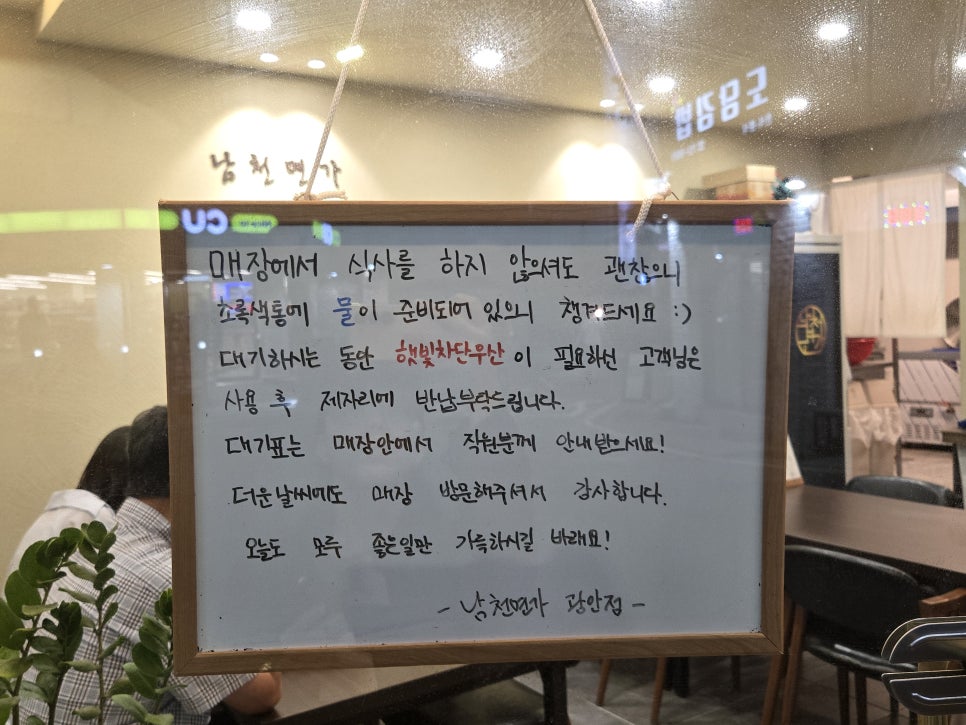 남천면가
도담김밥
CU
매장에서 식사를 하지 않으셔도 괜찮으니
초록색통에 물이 준비되어 있으니 챙겨드세요 :)
대기하시는 동안 햇빛차단우산이 필요하신 고객님은
사용 후 제자리에 반납부탁드립니다.
대기표는 매장안에서 직원분께 안내받으세요!
더운날씨에도 매장 방문해주셔서 감사합니다.
오늘도 모두 좋은일만 가득하시길 바래요!
- 남천면가 광안점 -